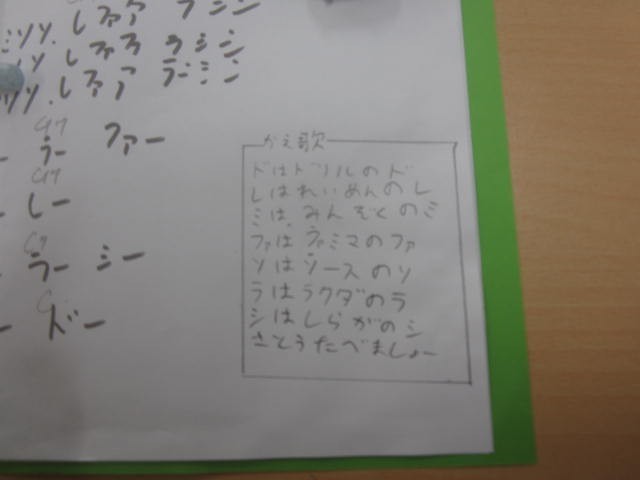 ミソソ. レファア ラシシ
ソソ. レファラ ラシシ
ソソ. レファア ラシシ
G7
ー ラー ファー
ー レー
ー ラー シー
ー ドー
かえ歌
ドはドリルのド
レはれいめんのレ
ミは、みんぞくのミ
ファはファミマのファ
ソはソースのソ
ラはラクダのラ
シはしらがのシ
さとうたべましょー